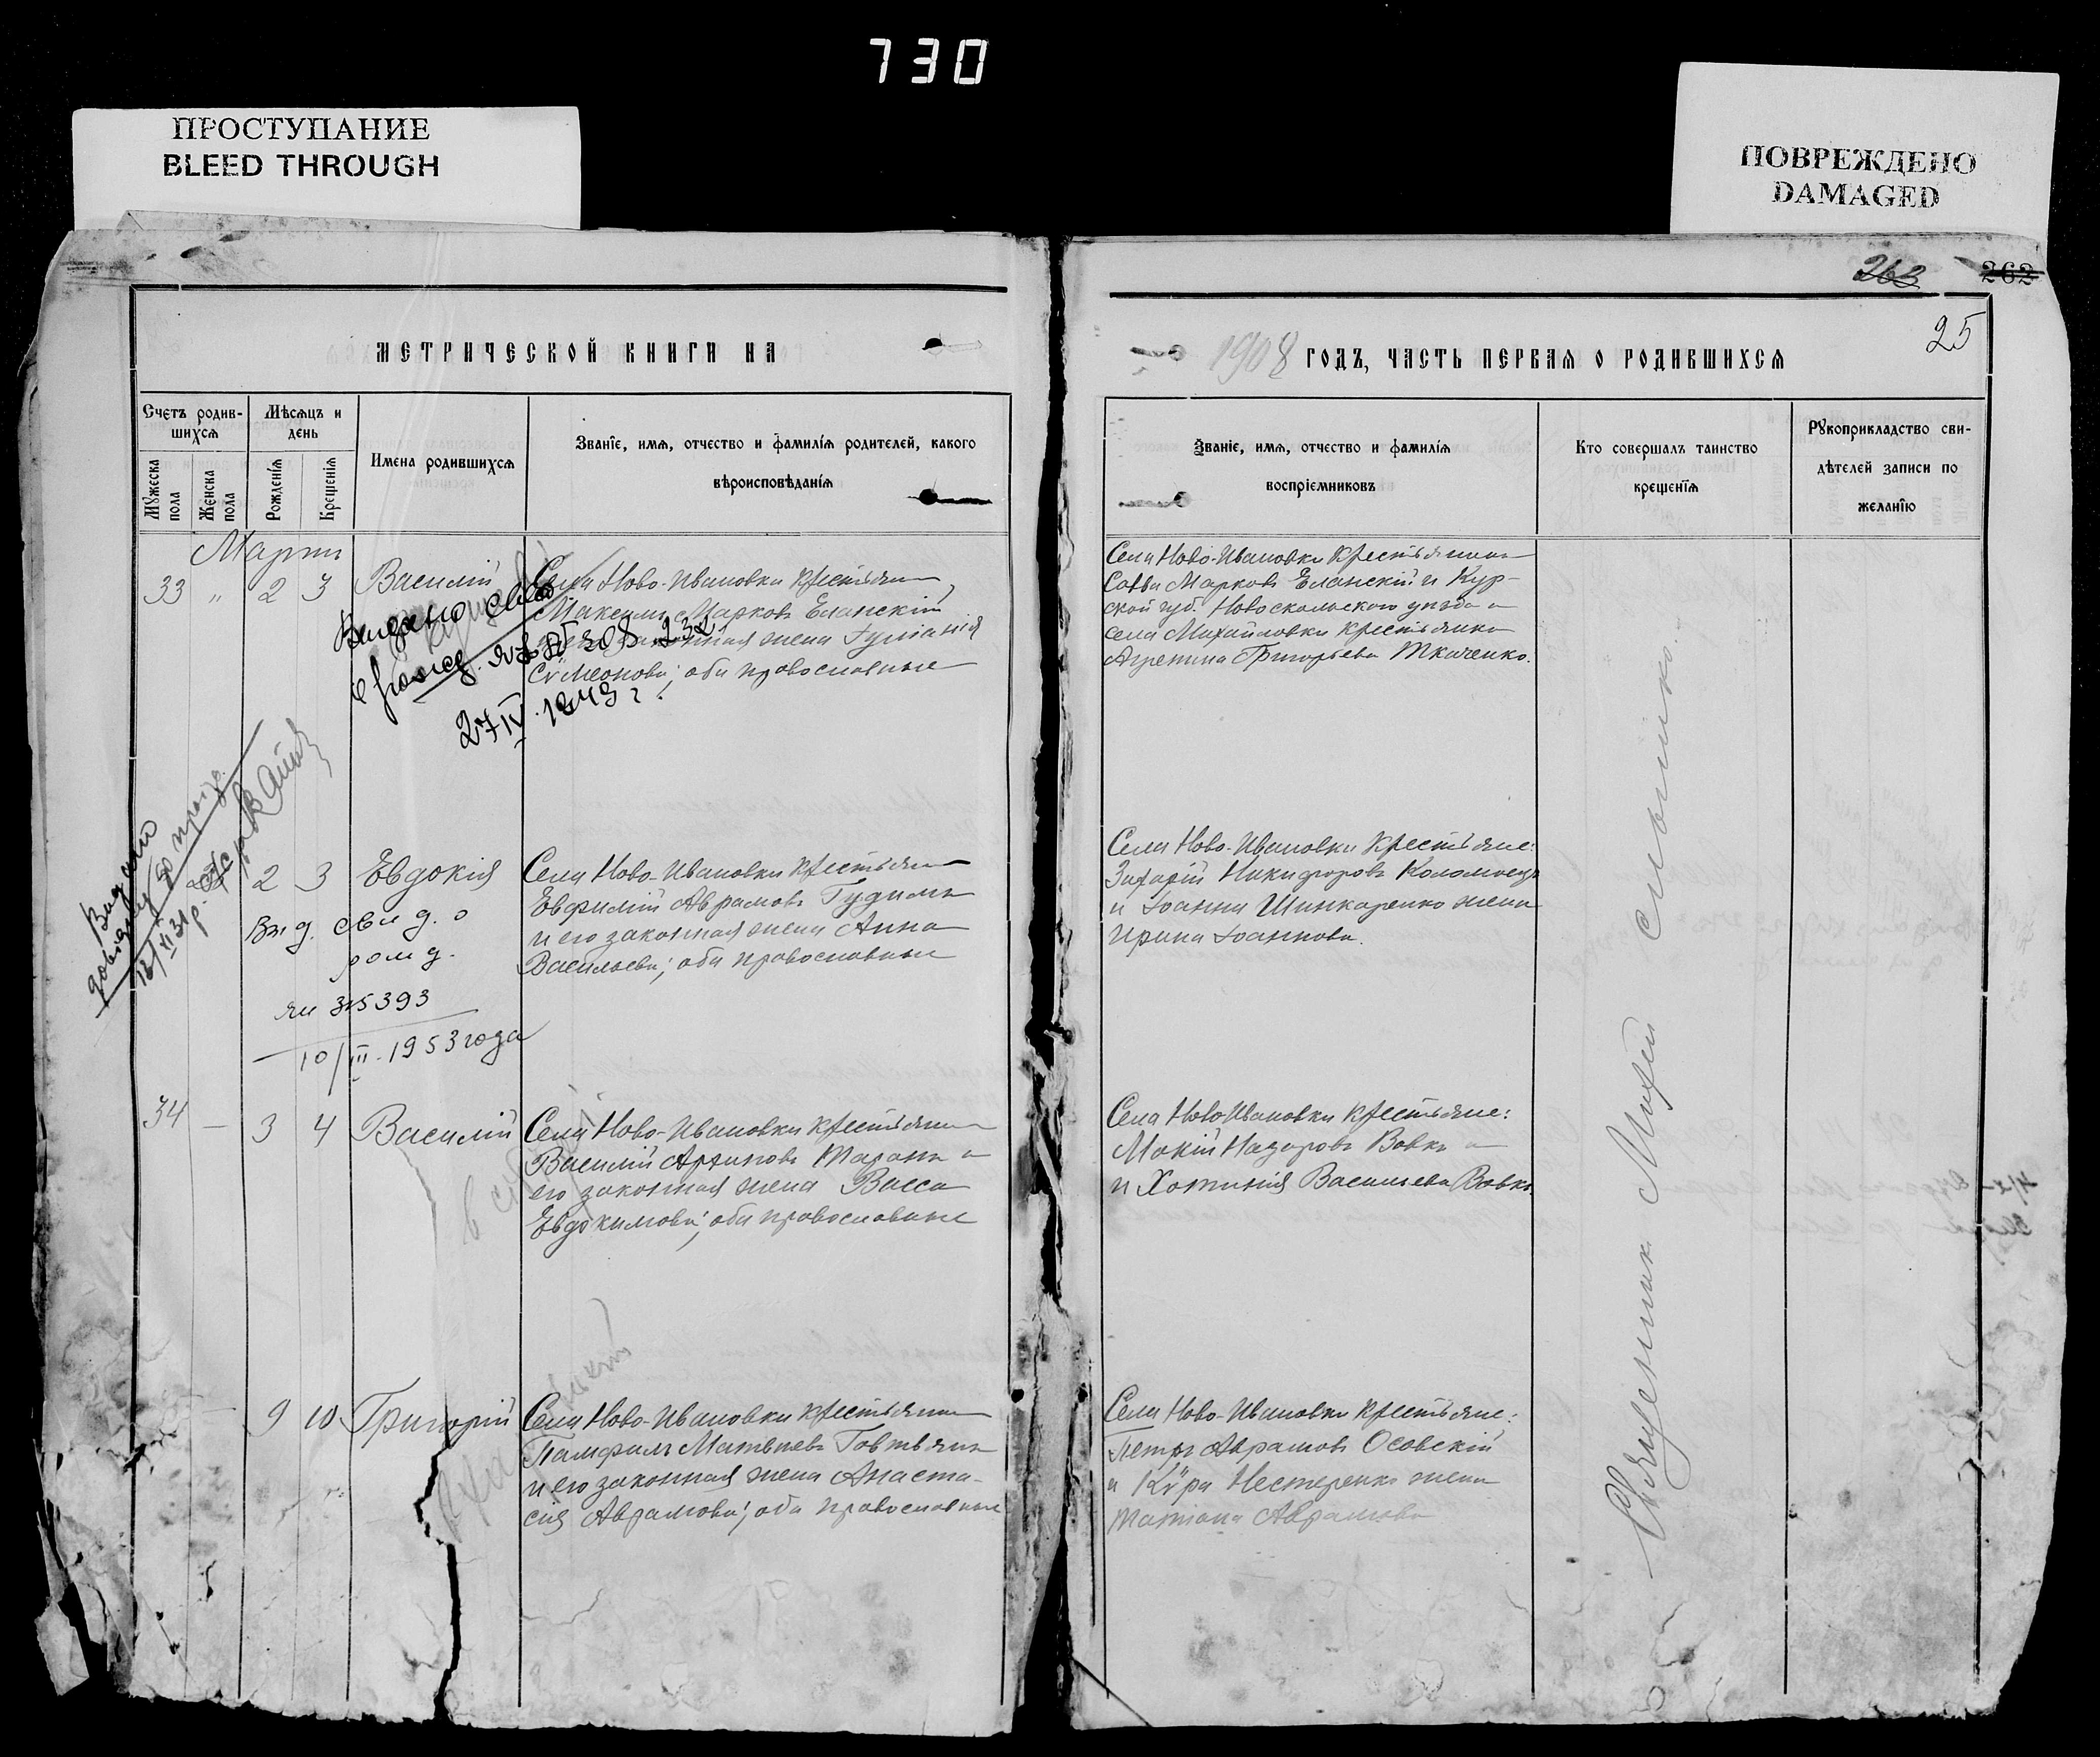 730
ПРОСТУПАНИЕ
BLEED THROUGH
ПОВРЕЖДЕНО
DAMAGED
263 262
25
МЕТРИЧЕСКОЙ КНИГИ НА
1908 ГОДЪ, ЧАСТЬ ПЕРВАЯ О РОДИВШИХСЯ
Счетъ родив-
шихся
Мужеска
пола
Женска
пола
Мѣсяцъ и
день
Рожденія
Крещенія
Имена родившихся
Званіе, имя, отчество и фамилія родителей, какого
вѣроисповѣданія
Званіе, имя, отчество и фамилія
воспріємниковъ
Кто совершалъ таинство
крещенїя
Рукоприкладство сви-
дѣтелей записи по
желанїю
Мартъ
33 " 2 3 Василій
Села Ново-Ивановки крестьянинъ
Максимъ Марковъ Еланскій
законная жена
Сѵмеонова; оба православные
Выдано свид.
о рожд.
27 IV. 1943 г.
Села Ново-Ивановки крестьянинъ
Савва Марковъ Еланскій и Кур-
ской губ. Новоскольского уѣзда
села Михайловки крестьянка
Агрепина Григорьева Ткаченко.
Видано
довідку
18/VI 31 р.
2 3 Евдокія
Села Ново-Ивановки крестьянинъ
Евфимій Аврамовъ Гудимъ
и его законная жена Анна
Васильева; оба православные
Выд. свид. о
рожд.
10/III. 1953 года
Села Ново-Ивановки крестьяне:
Захарій Никифоровъ Коломоецъ
и Іоанна Шинкаренко жена
Ирина Іоаннова.
34 — 3 4 Василій
Села Ново-Ивановки крестьянинъ
Василій Архиповъ Таранъ и
его законная жена Васса
Евдокимова; оба православные
Села Ново-Ивановки крестьяне:
Мокій Назаровъ Вовкъ
и Хотинія Васильева Вовкъ.
9 10 Григорій
Села Ново-Ивановки крестьянинъ
Памфилъ Матвѣевъ Говтвянъ
и его законная жена Анаста-
сія Аврамова; оба православные
Села Ново-Ивановки крестьяне:
Петръ Аврамовъ Осовскій
и Кѵра Нестеренко жена
Татіана Аврамова
Священник Михей